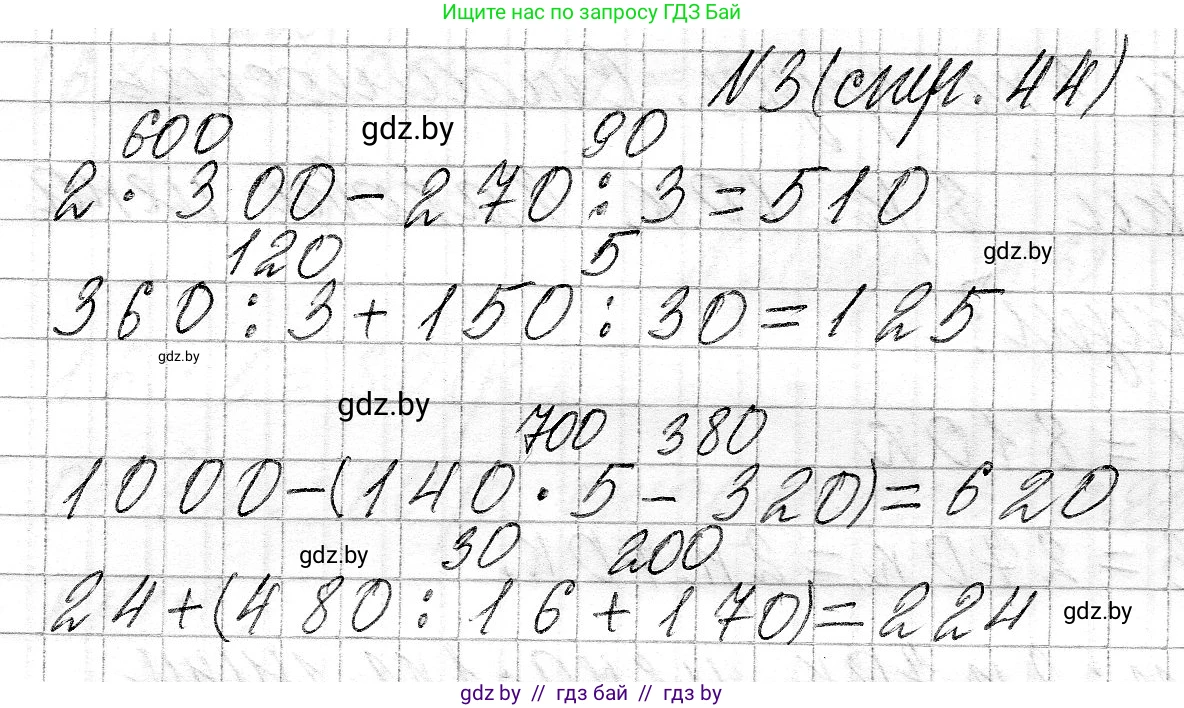 Ищите нас по запросу ГДЗ Бай
№3 (стр. 44)
600 gdz.by 90
2 · 300 - 270 : 3 = 510
120 5 gdz.by
360 : 3 + 150 : 30 = 125
gdz.by
gdz.by 700 380
1000 - (140 · 5 - 320) = 620
gdz.by 30 200
24 + (480 : 16 + 170) = 224 gdz.by
gdz.by // гдз бай // гдз by